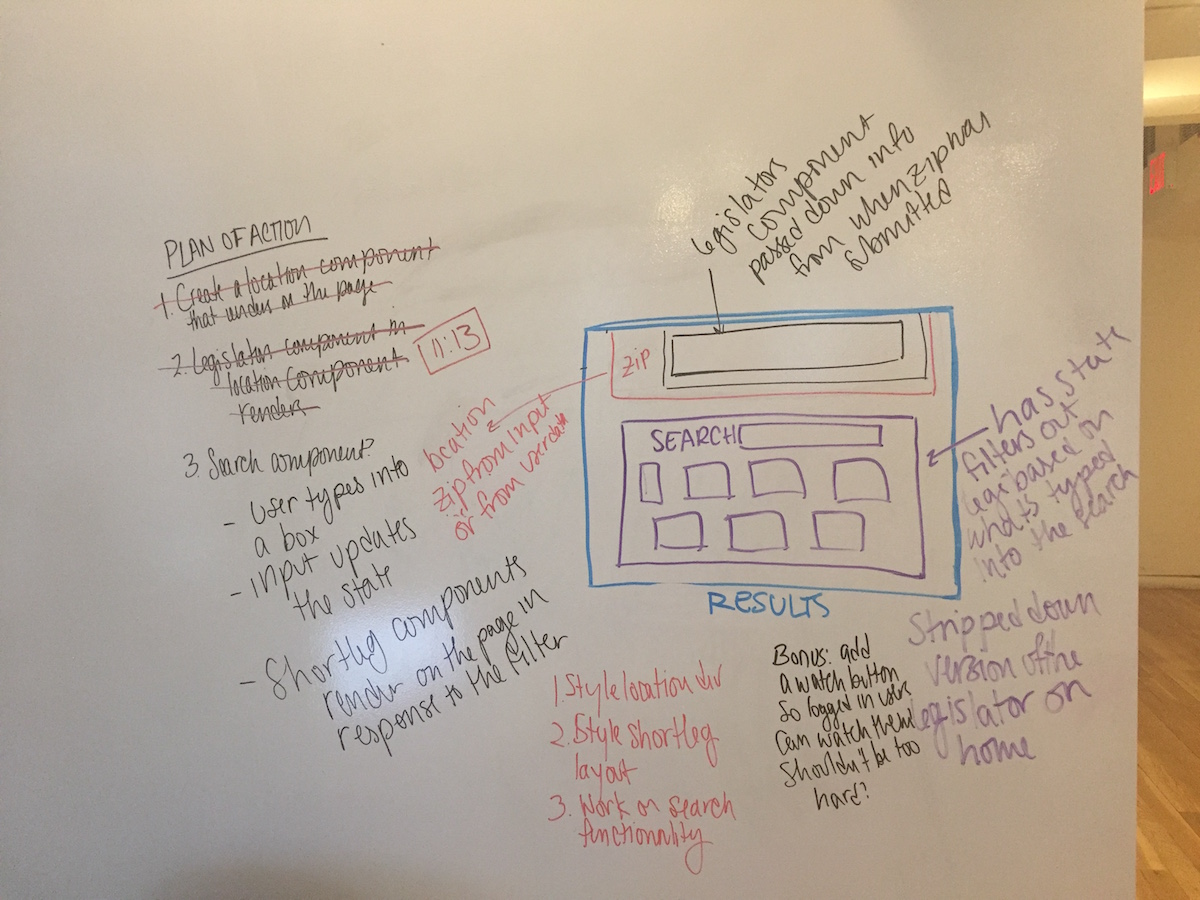 PLAN OF ACTION
1. Create a location component
that renders on the page
2. Legislator component in
location component
renders
11:13
3. Search component?
- User types into
a box
- input updates
the state
- Shortleg components
render on the page in
response to the filter
legislators
component
passed down into
from when zip was
submitted
zip
location
zip from input
or from user data
SEARCH
RESULTS
has state
filters out
legs based on
what is typed
into the search
Stripped down
version of the
legislator on
home
1. Style location div
2. Style shortleg
layout
3. Work on search
functionality
Bonus: add
a watch button
so logged in users
can watch them
Shouldn't be too
hard?